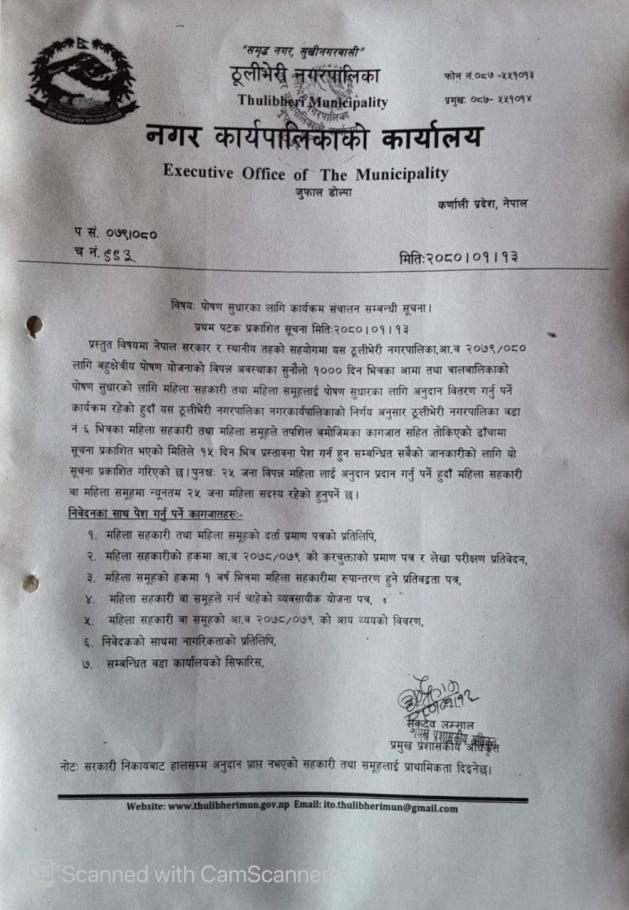 "समृद्ध नगर, सुखीनगरवासी"
ठूलीभेरी नगरपालिका
फोन नं.०८७ -५५१०१३
Thulibheri Municipality
प्रमुखः ०८७- ५५१०१४
नगर कार्यपालिकाको कार्यालय
Executive Office of The Municipality
जुफाल डोल्पा
कर्णाली प्रदेश, नेपाल
प सं. ०७९।०८०
च नं. ९९३
मितिः२०८०।०१।१३
विषयः पोषण सुधारका लागि कार्यक्रम संचालन सम्बन्धी सूचना।
प्रथम पटक प्रकाशित सूचना मितिः२०८०।०१।१३
प्रस्तुत विषयमा नेपाल सरकार र स्थानीय तहको सहयोगमा यस ठूलीभेरी नगरपालिका,आ.व २०७९/०८०
लागि बहुक्षेत्रीय पोषण योजनाको विपन्न अवस्थाका सुनौलो १००० दिन भित्रका आमा तथा बालबालिकाको
पोषण सुधारको लागि महिला सहकारी तथा महिला समूहलाई पोषण सुधारका लागि अनुदान वितरण गर्नु पर्ने
कार्यक्रम रहेको हुदाँ यस ठूलीभेरी नगरपालिका नगरकार्यपालिकाको निर्णय अनुसार ठूलीभेरी नगरपालिका वडा
नं ६ भित्रका महिला सहकारी तथा महिला समूहले तपशिल बमोजिमका कागजात सहित तोकिएको ढाँचामा
सूचना प्रकाशित भएको मितिले १५ दिन भित्र प्रस्तावना पेश गर्न हुन सम्बन्धित सबैको जानकारीको लागि यो
सूचना प्रकाशित गरिएको छ।पुनश्चः २५ जना विपन्न महिला लाई अनुदान प्रदान गर्नु पर्ने हुदाँ महिला सहकारी
वा महिला समूहमा न्यूनतम २५ जना महिला सदस्य रहेको हुनुपर्ने छ।
निवेदनका साथ पेश गर्नु पर्ने कागजातहरुः-
१. महिला सहकारी तथा महिला समूहको दर्ता प्रमाण पत्रको प्रतिलिपि,
२. महिला सहकारीको हकमा आ.व २०७८/०७९ को करचुक्ताको प्रमाण पत्र र लेखा परीक्षण प्रतिवेदन,
३. महिला समूहको हकमा १ बर्ष भित्रमा महिला सहकारीमा रुपान्तरण हुने प्रतिबद्धता पत्र,
४. महिला सहकारी वा समूहले गर्न चाहेको व्यवसायीक योजना पत्र,
५. महिला सहकारी वा समूहको आ.व २०७८/०७९ को आय व्ययको विवरण,
६. निवेदकको साथमा नागरिकताको प्रतिलिपि,
७. सम्बन्धित वडा कार्यालयको सिफारिस,
प्रमुख प्रशासकीय अधिकृत
नोटः सरकारी निकायबाट हालसम्म अनुदान प्राप्त नभएको सहकारी तथा समूहलाई प्राथामिकता दिइनेछ।
Website: www.thulibherimun.gov.np Email: ito.thulibherimun@gmail.com
CS Scanned with CamScanner